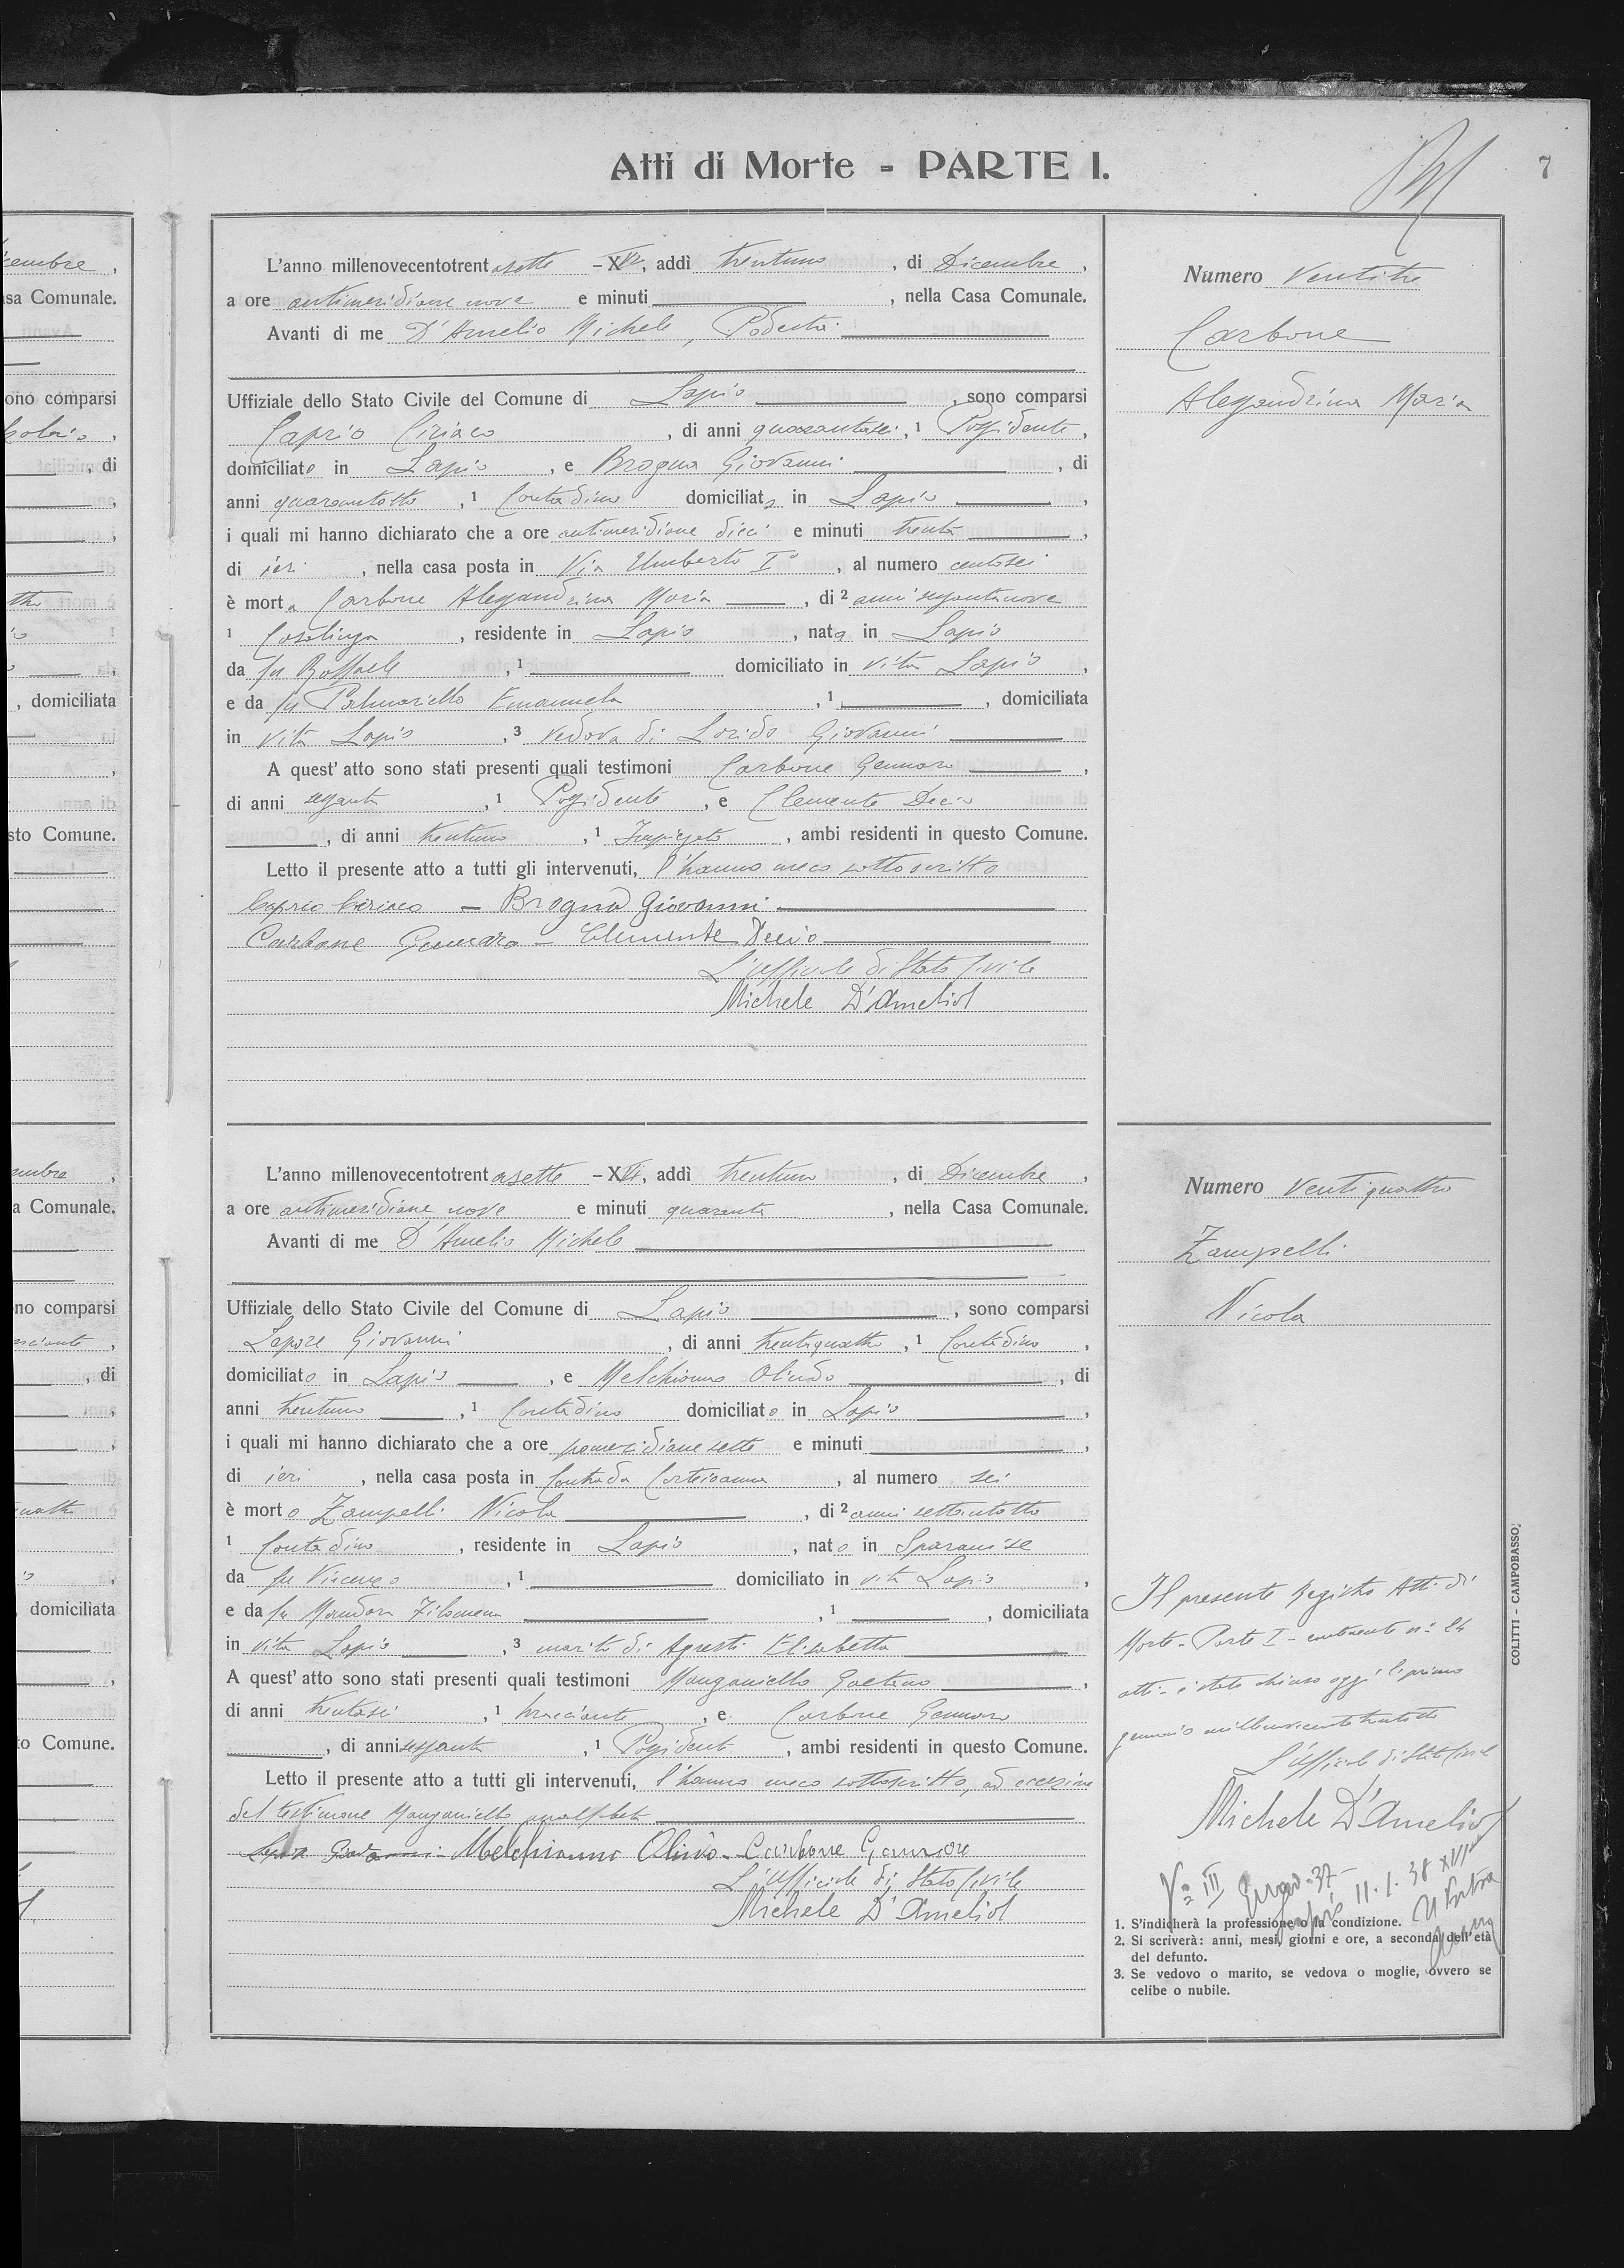 Atti di Morte - PARTE I.
7
L'anno millenovecentotrentasette - XVI, addì trentuno, di Dicembre,
a ore antimeridiane nove e minuti, nella Casa Comunale.
Avanti di me D'Amelio Michele, Podestà
Uffiziale dello Stato Civile del Comune di Lapio, sono comparsi
Caprio Ciriaco, di anni quarantasei, 1 Possidente,
domiciliato in Lapio, e Brogna Giovanni, di
anni quarantotto, 1 Contadino domiciliato in Lapio,
i quali mi hanno dichiarato che a ore antimeridiane dieci e minuti trenta,
di ieri, nella casa posta in Via Umberto I°, al numero centosei
è morta Carbone Alessandrina Maria, di 2 anni sessantanove
1 Casalinga, residente in Lapio, nata in Lapio
da fu Raffaele, 1 domiciliato in vita Lapio,
e da fu Palmariello Emanuela, 1, domiciliata
in vita Lapio, 3 vedova di Giovanni
A quest'atto sono stati presenti quali testimoni Carbone Gennaro,
di anni sessanta, 1 Possidente, e Clemente Decio
, di anni trentuno, 1 Impiegato, ambi residenti in questo Comune.
Letto il presente atto a tutti gli intervenuti, l'hanno meco sottoscritto
Caprio Ciriaco - Brogna Giovanni
Carbone Gennaro - Clemente Decio
L'ufficiale di Stato Civile
Michele D'Amelio
Numero Ventitre
Carbone
Alessandrina Maria
L'anno millenovecentotrentasette - XVI, addì trentuno, di Dicembre,
a ore antimeridiane nove e minuti quaranta, nella Casa Comunale.
Avanti di me D'Amelio Michele
Uffiziale dello Stato Civile del Comune di Lapio, sono comparsi
Lepore Giovanni, di anni trentaquattro, 1 Contadino,
domiciliato in Lapio, e Melchionno Olindo, di
anni trentuno, 1 Contadino domiciliato in Lapio,
i quali mi hanno dichiarato che a ore pomeridiane sette e minuti,
di ieri, nella casa posta in Contrada, al numero sei
è morto Zampelli Nicola, di 2 anni settantotto
1 Contadino, residente in Lapio, nato in Sparanise
da fu Vincenzo, 1 domiciliato in vita Lapio,
e da fu Filomena, 1, domiciliata
in vita Lapio, 3 marito di Agresti Elisabetta
A quest'atto sono stati presenti quali testimoni Manganiello Gaetano,
di anni trentasei, 1 bracciante, e Carbone Gennaro
, di anni sessanta, 1 Possidente, ambi residenti in questo Comune.
Letto il presente atto a tutti gli intervenuti, l'hanno meco sottoscritto, ad eccezione
del testimone Manganiello analfabeta
Lepore Giovanni - Melchionno Olindo - Carbone Gennaro
L'Ufficiale di Stato Civile
Michele D'Amelio
Numero Ventiquattro
Zampelli
Nicola
Il presente Registro Atti di
Morte - Parte I - contenente n° 24
atti - è stato chiuso oggi li primo
gennaio millenovecentotrentotto
L'Ufficiale di Stato Civile
Michele D'Amelio
11.1.38 XVI
1. S'indicherà la professione o la condizione.
2. Si scriverà: anni, mesi, giorni e ore, a seconda dell'età
del defunto.
3. Se vedovo o marito, se vedova o moglie, ovvero se
celibe o nubile.
COLITTI - CAMPOBASSO.
cembre,
sa Comunale.
ono comparsi
, di
, domiciliata
sto Comune.
a Comunale.
no comparsi
, di
domiciliata
to Comune.